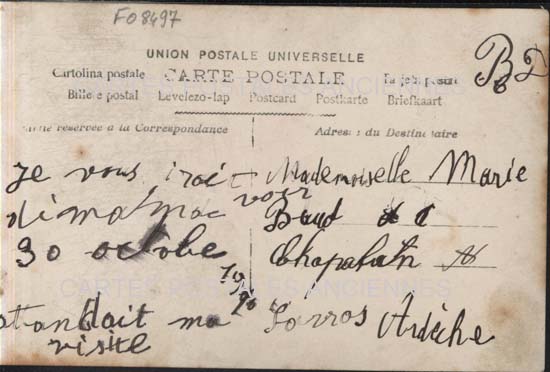 F08497
UNION POSTALE UNIVERSELLE
Cartolina postale CARTE POSTALE
Bill postal Levelezo-lap Postcard Postkarte Briefkaart
rtie réservée à la Correspondance
Adres du Destinataire
je vous iroit
voir
dimanac
30 octobes
attandait ma
visite
Mademoiselle Marie
Baud
Sarros Ardèche
CARTES POSTALES ANCIENNES